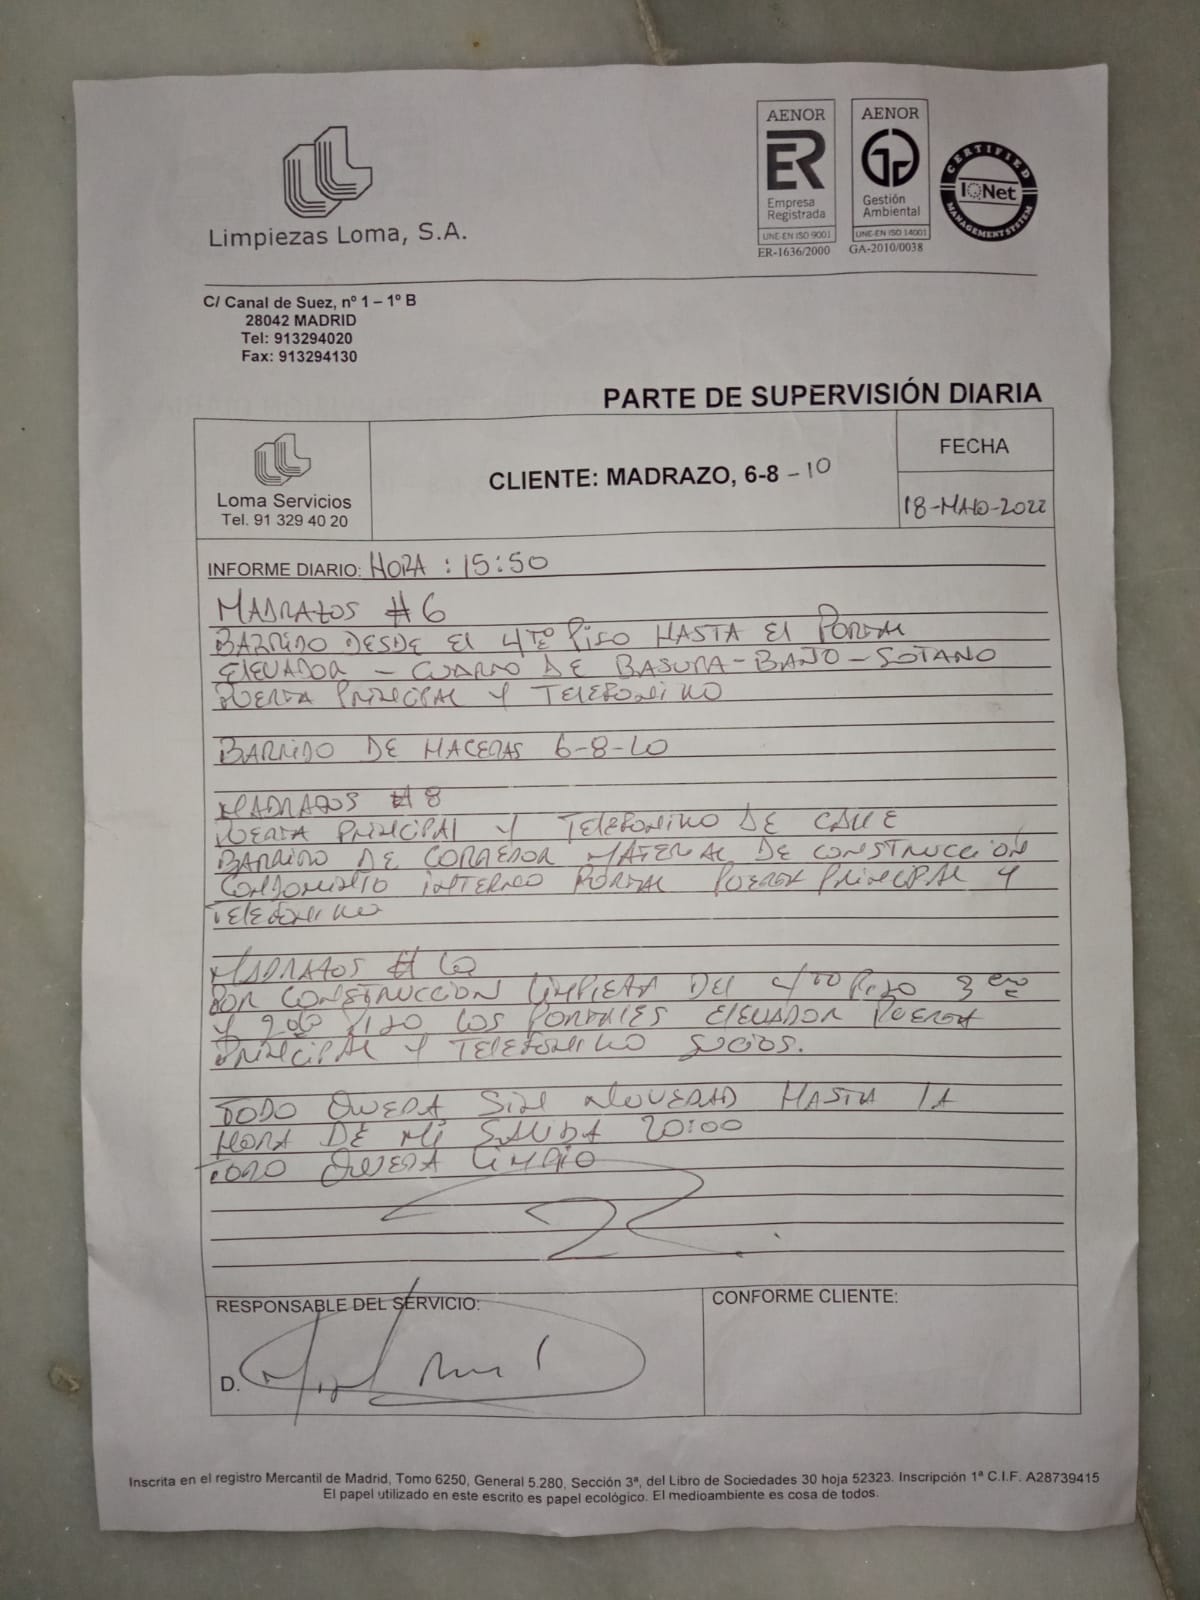 Limpiezas Loma, S.A.
AENOR
ER
Empresa
Registrada
UNE-EN ISO 9001
ER-1636/2000
AENOR
Gestión
Ambiental
UNE-EN ISO 14001
GA-2010/0038
CERTIFIED
IQNet
MANAGEMENT SYSTEM
C/ Canal de Suez, nº 1 – 1º B
28042 MADRID
Tel: 913294020
Fax: 913294130
PARTE DE SUPERVISIÓN DIARIA
Loma Servicios
Tel. 91 329 40 20
CLIENTE: MADRAZO, 6-8 -10
FECHA
18-MAIO-2022
INFORME DIARIO: HORA : 15:50
MADRAZOS #6
BARRIDO DESDE El 4TO PISO HASTA El PORTAL
ELEVADOR - CUARTO DE BASURA-BAJO-SOTANO
PUERTA PRINCIPAL Y TELEFONIKO
BARRIDO DE MACERAS 6-8-10
MADRAZOS #8
PUERTA PRINCIPAL Y TELEFONIKO DE CALLE
BARRIDO DE CORREDOR MATERIAL DE CONSTRUCCION
INTERNO PORTAL PUERTA PRINCIPAL Y
TELEFONIKO
MADRAZOS # 10
POR CONSTRUCCION LIMPIEZA DEL 4TO PISO 3ERO
Y 2DO PISO LOS PORTALES ELEVADOR PUERTA
PRINCIPAL Y TELEFONIKO SUCIOS.
TODO QUEDA SIN NOVEDAD HASTA lA
HORA DE Mi SALIDA 20:00
TODO QUEDA LIMPIO
RESPONSABLE DEL SERVICIO:
CONFORME CLIENTE:
D.
Inscrita en el registro Mercantil de Madrid, Tomo 6250, General 5.280, Sección 3ª, del Libro de Sociedades 30 hoja 52323. Inscripción 1ª C.I.F. A28739415
El papel utilizado en este escrito es papel ecológico. El medioambiente es cosa de todos.